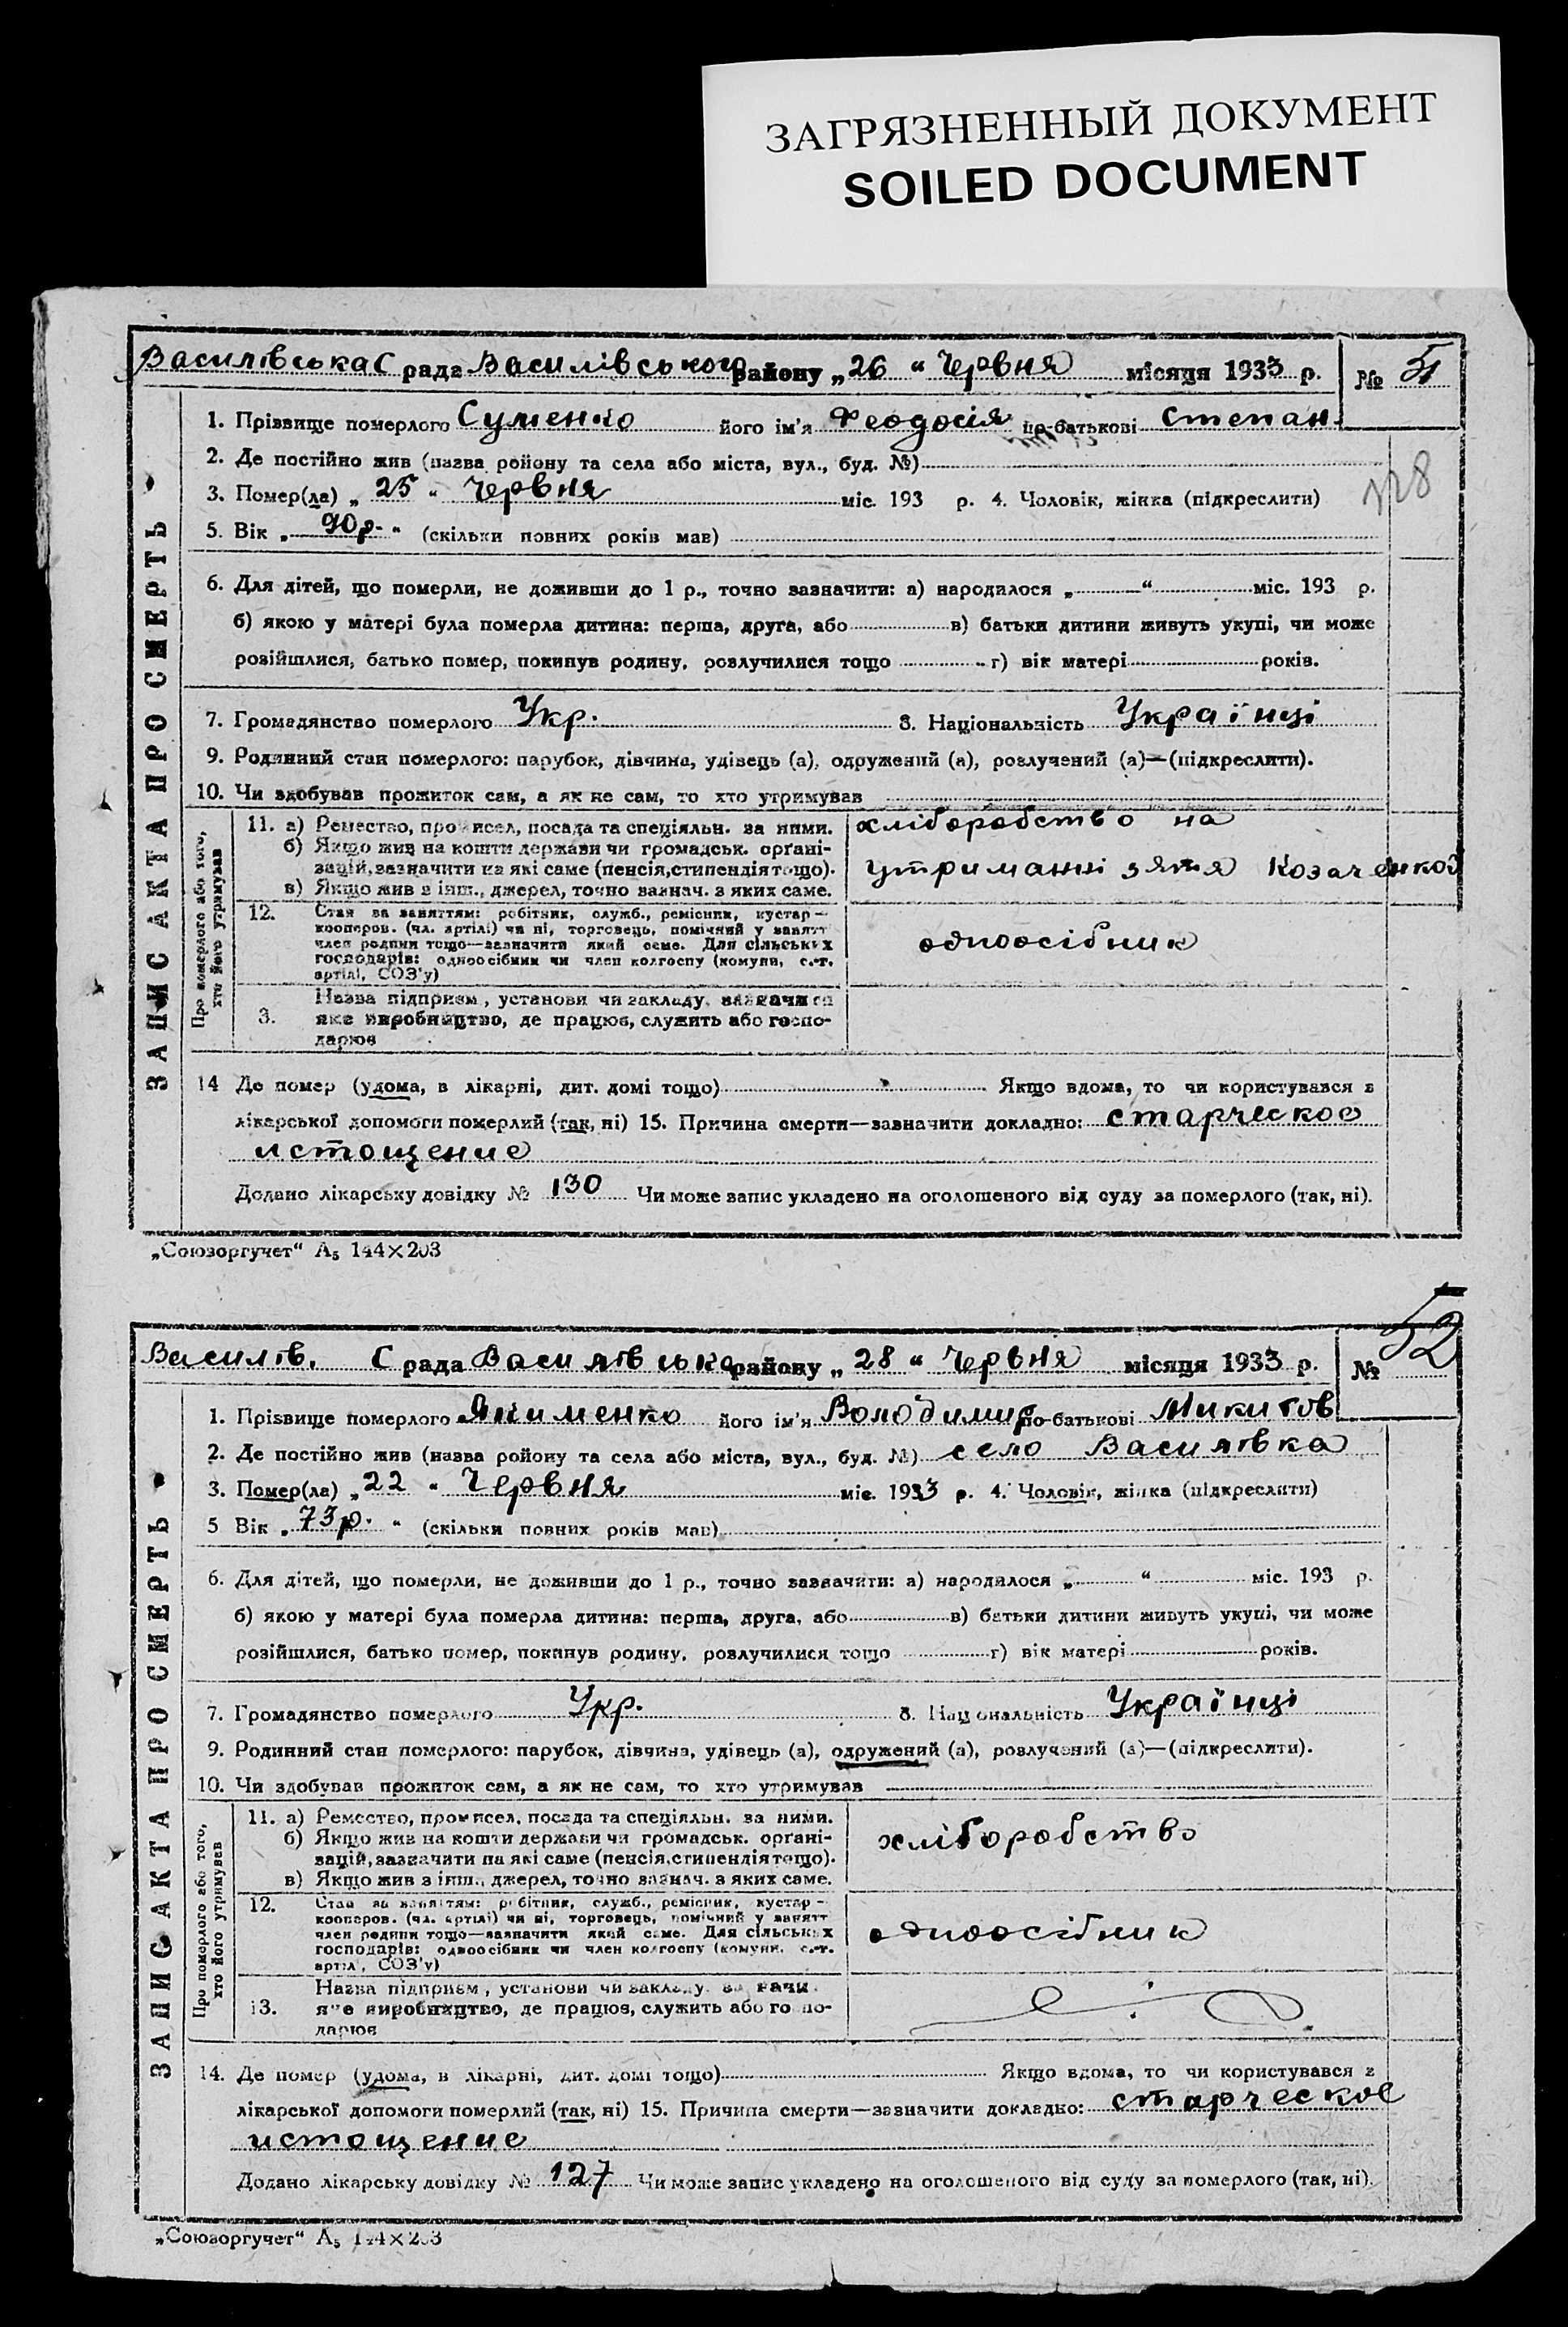 ЗАГРЯЗНЕННЫЙ ДОКУМЕНТ
SOILED DOCUMENT
Василівська С рада Василівського району „26“ Червня місяця 1933 р. № 51
1. Прізвище померлого Суменко його ім'я Феодосія по-батькові Степан.
2. Де постійно жив (назва району та села або міста, вул., буд. №)
128
3. Помер(ла) „25“ Червня міс. 193 р. 4. Чоловік, жінка (підкреслити)
5. Вік „90р.“ (скільки повних років мав)
6. Для дітей, що померли, не доживши до 1 р., точно зазначити: а) народилося „ “ міс. 193 р.
б) якою у матері була померла дитина: перша, друга, або в) батьки дитини живуть укупі, чи може
розійшлися, батько помер, покинув родину, розлучилися тощо г) вік матері років.
7. Громадянство померлого Укр. 8. Національність Українці
9. Родинний стан померлого: парубок, дівчина, удівець (а), одружений (а), розлучений (а)—(підкреслити).
10. Чи здобував прожиток сам, а як не сам, то хто утримував
ЗАПИС АКТА ПРО СМЕРТЬ
Про померлого або того, хто його утримував
11. а) Ремество, промисел, посада та спеціяльн. за ними.
б) Якщо жив на кошти держави чи громадськ. орґані-
зацій, зазначити на які саме (пенсія, стипендія тощо).
в) Якщо жив з інш., джерел, точно зазнач. з яких саме.
хліборобство на
утриманні зятя Козаченков
12. Стан за заняттям: робітник, служб., ремісник, кустар —
кооперов. (чл. артілі) чи ні, торговець, помічний у занятт
член родини тощо—зазначити який саме. Для сільських
господарів: одноосібник чи член колгоспу (комуни, с.-г.
артілі, СОЗ'у)
одноосібник
3. Назва підприєм., установи чи закладу, зазначити
яке виробництво, де працює, служить або госпо-
дарює
14 Де помер (удома, в лікарні, дит. домі тощо) Якщо вдома, то чи користувався з
лікарської допомоги померлий (так, ні) 15. Причина смерти—зазначити докладно: старческое
истощение
Додано лікарську довідку № 130 Чи може запис укладено на оголошеного від суду за померлого (так, ні).
„Союзоргучет“ А5 144×203
Василів. С рада Василівська району „28“ Червня місяця 1933 р. № 52
1. Прізвище померлого Якименко його ім'я Володимир по-батькові Микитов
2. Де постійно жив (назва району та села або міста, вул., буд. №) село Василівка
3. Помер(ла) „22“ Червня міс. 1933 р. 4. Чоловік, жінка (підкреслити)
5 Вік „73р.“ (скільки повних років мав)
6. Для дітей, що померли, не доживши до 1 р., точно зазначити: а) народилося „ “ міс. 193 р.
б) якою у матері була померла дитина: перша, друга, або в) батьки дитини живуть укупі, чи може
розійшлися, батько помер, покинув родину, розлучилися тощо г) вік матері років.
7. Громадянство померлого Укр. 8. Національність Українці
9. Родинний стан померлого: парубок, дівчина, удівець (а), одружений (а), розлучений (а)—(підкреслити).
10. Чи здобував прожиток сам, а як не сам, то хто утримував
ЗАПИС АКТА ПРО СМЕРТЬ
Про померлого або того, хто його утримував
11. а) Ремество, промисел, посада та спеціяльн. за ними.
б) Якщо жив на кошти держави чи громадськ. орґані-
зацій, зазначити на які саме (пенсія, стипендія тощо).
в) Якщо жив з інш., джерел, точно зазнач. з яких саме.
хліборобство
12. Стан за заняттям: робітник, служб., ремісник, кустар —
кооперов. (чл. артілі) чи ні, торговець, помічний у занятт
член родини тощо—зазначити який саме. Для сільських
господарів: одноосібник чи член колгоспу (комуни, с.-г.
артіл, СОЗ'у)
одноосібник
13. Назва підприєм., установи чи закладу, зазначи
яке виробництво, де працює, служить або госпо-
дарює
14. Де помер (удома, в лікарні, дит. домі тощо) Якщо вдома, то чи користувався з
лікарської допомоги померлий (так, ні) 15. Причина смерти—зазначити докладно: старческое
истощение
Додано лікарську довідку № 127 Чи може запис укладено на оголошеного від суду за померлого (так, ні).
„Союзоргучет“ А5 144×203